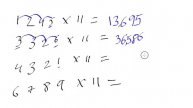 1245 x 11 = 13,695
3326 x 11 = 36586
4321 x 11 =
6789 x 11 =